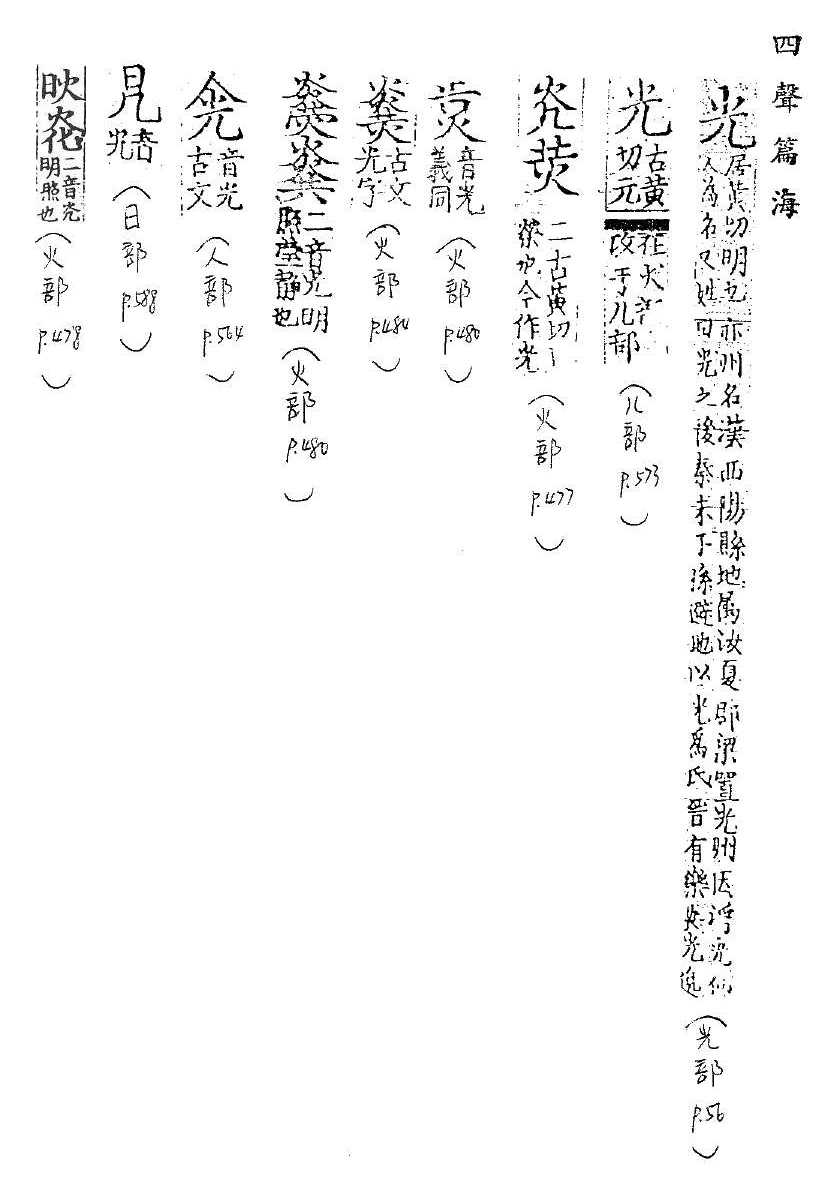 四聲篇海
光 居黄切明也亦州名漢西陽縣地屬汝夏郡梁置光州因浮光仙
人為名又姓田光之後秦末子孫避地以光為氏晉有樂安光逸
(光部 P.56)
光 古黄切元在火部改于儿部 (儿部 P.573)
二古黄切
榮也今作光 (火部 P.477)
音光義同 (火部 P.480)
古文光字 (火部 P.484)
二音光明照瑩靜也 (火部 P.480)
音光古文 (人部 P.564)
音光 (日部 P.588)
二音光明照也 (火部 P.478)